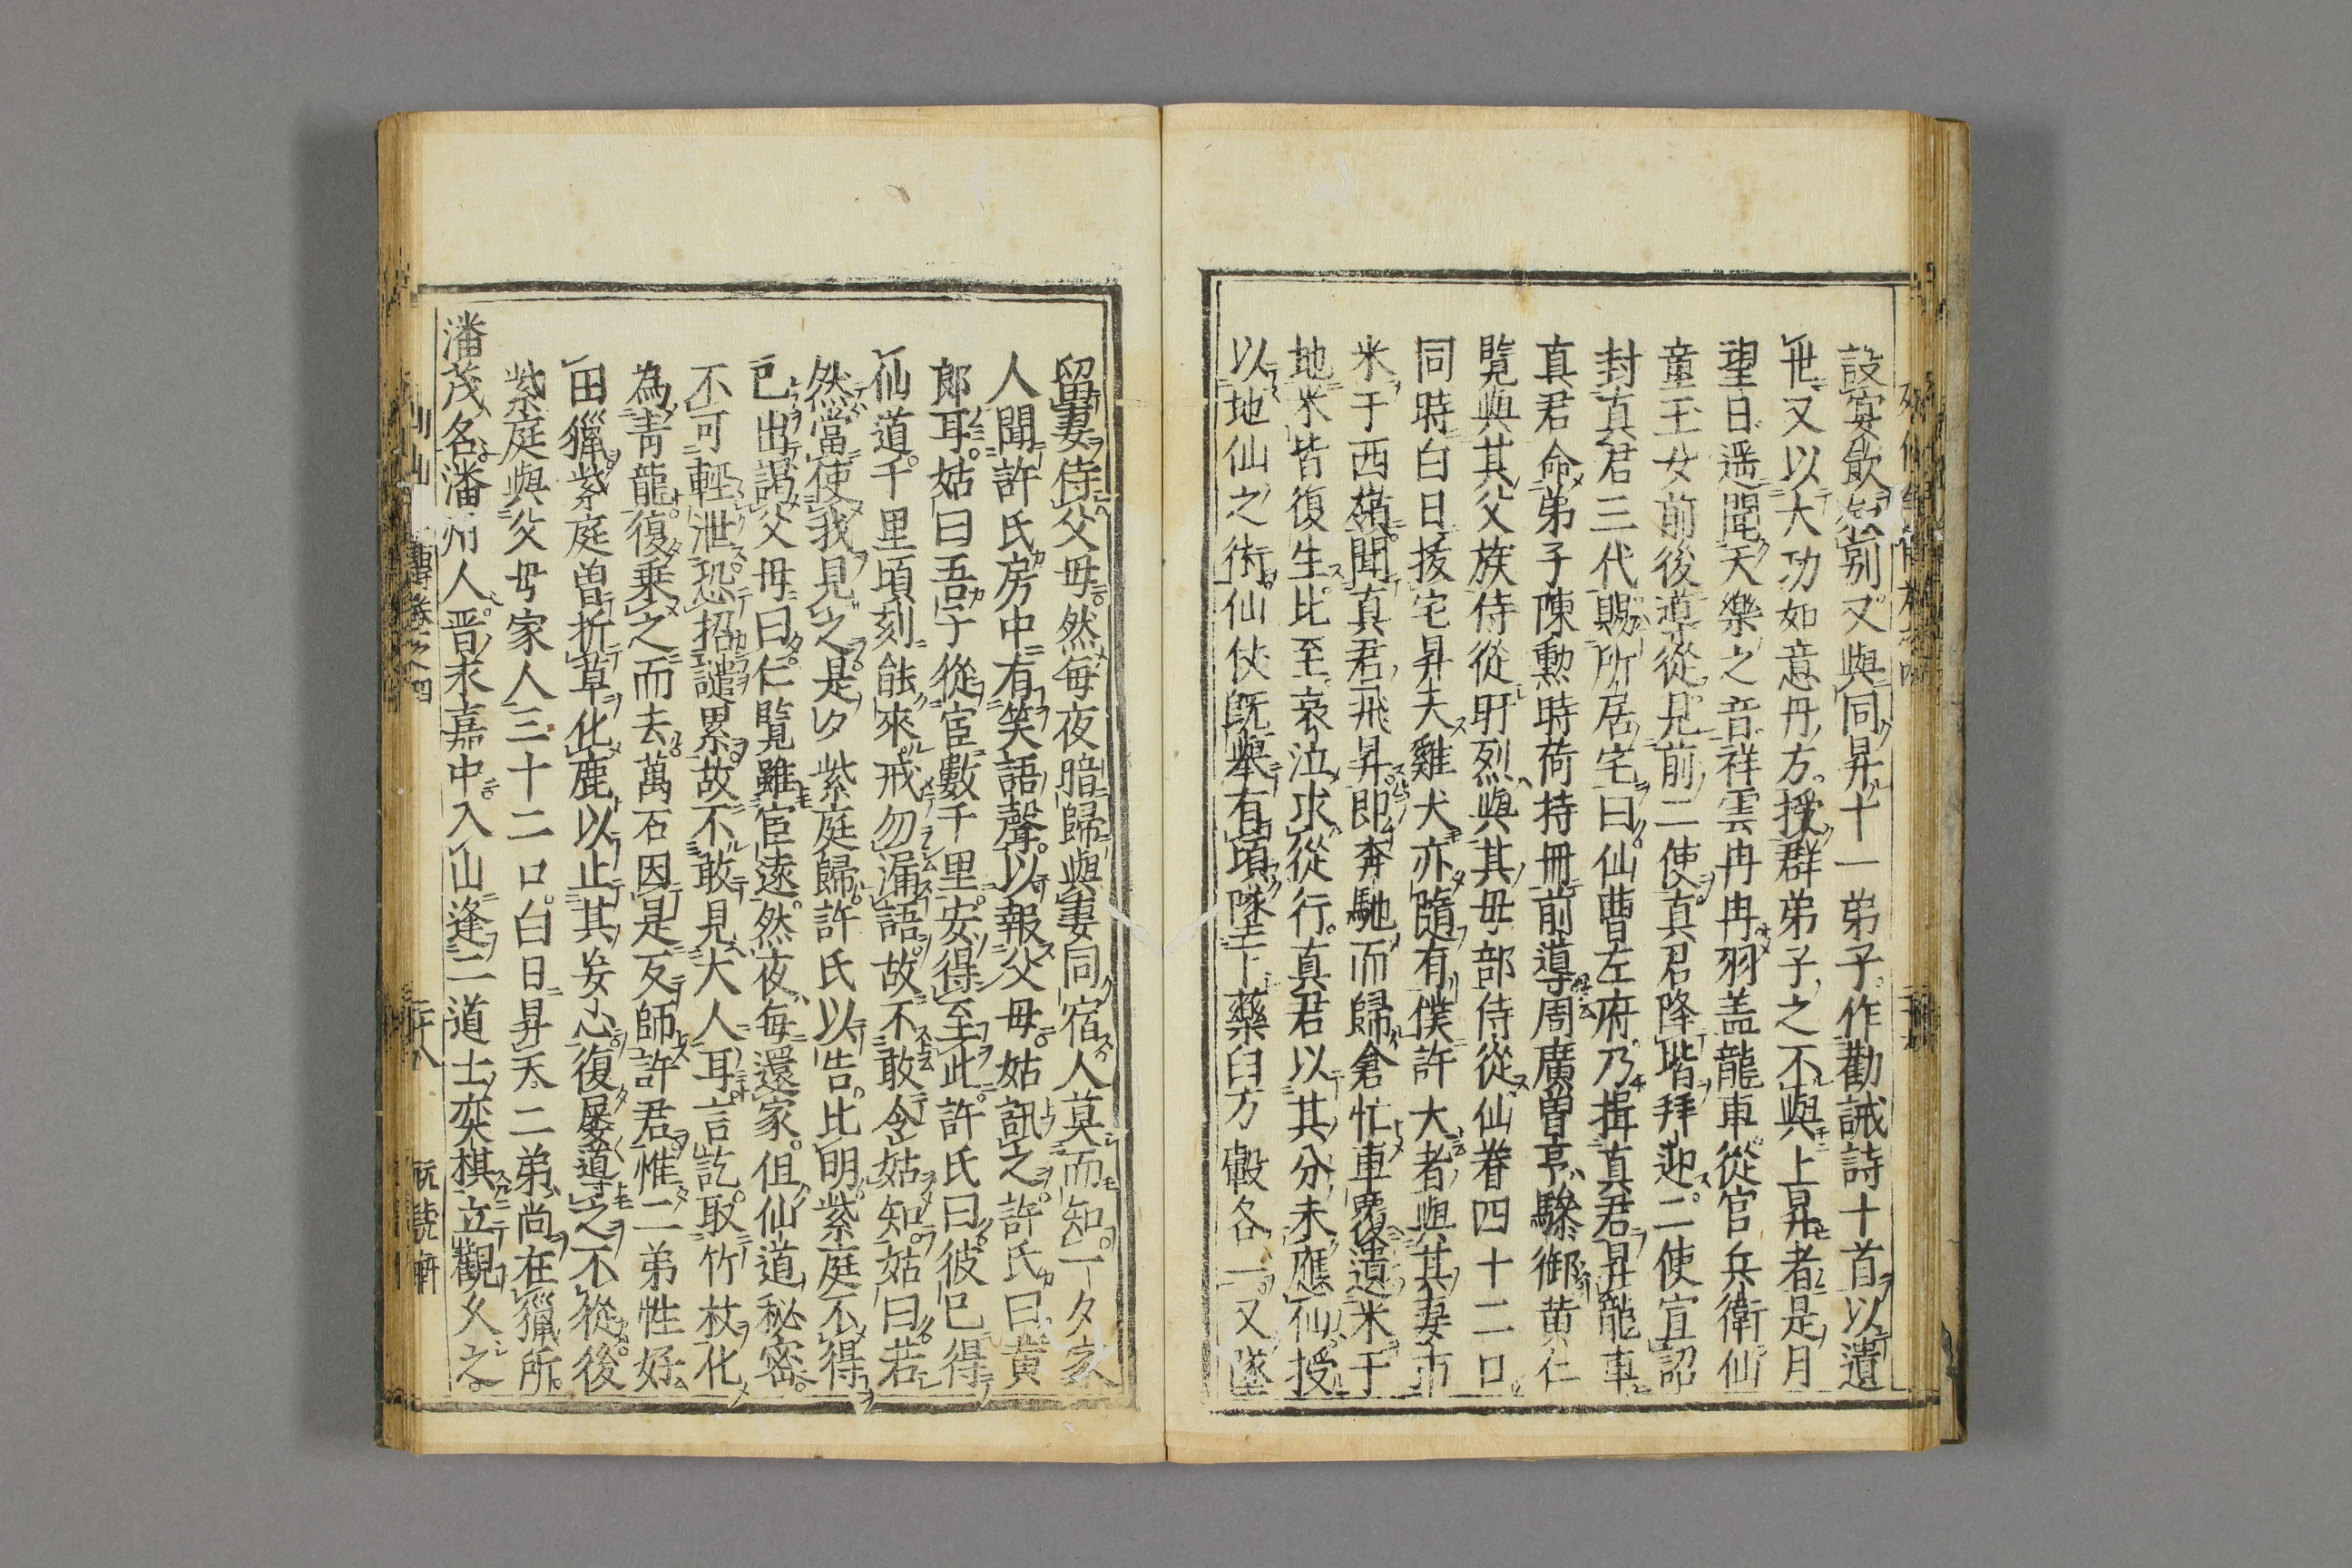 設宴飲叙別又與同昇十一弟子作勸誡詩十首以遺
世又以大功如意丹方授群弟子之不與上昇者是月
望日遥聞天樂之音祥雲冉冉羽盖龍車從官兵衛仙
童玉女前後導從見前二使真君降階拜迎二使宣詔
封真君三代賜所居宅曰仙曹左府乃揖真君昇龍車
真君命弟子陳勲時荷持冊前導周廣曽亨驂御黄仁
覽與其父族侍從盱烈與其母部侍從仙眷四十二口
同時白日拔宅昇天雞犬亦隨有僕許大者與其妻市
米于西嶺聞真君飛昇即奔馳而歸倉忙車覆遺米于
地米皆復生比至哀泣求從行真君以其分未應仙授
以地仙之術仙仗既舉有頃墜下藥臼方轂各一又墜
留妻侍父母然每夜暗歸與妻同宿人莫而知一夕家
人聞許氏房中有笑語聲以報父母姑訊之許氏曰黄
郎耳姑曰吾子從宦數千里安得至此許氏曰彼已得
仙道千里頃刻能來戒勿漏語故不敢令姑知姑曰若
然當使我見之是夕紫庭歸許氏以告比明紫庭不得
已出謁父母曰仁覽雖宦遠然夜每還家但仙道秘密
不可輕泄恐招譴累故不敢見大人耳言訖取竹杖化
為青龍復乗之而去萬石因是反師許君惟二弟性好
田獵紫庭曽折草化鹿以止其妄心復屡導之不從後
紫庭與父母家人三十二口白日昇天二弟尚在獵所
潘茂名潘州人晋永嘉中入山逢二道士奕棋立觀久之